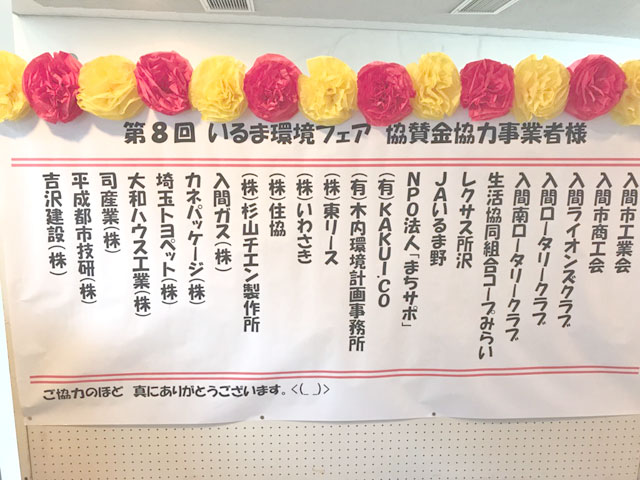 第8回 いるま環境フェア 協賛金協力事業者様
入間市工業会
入間市商工会
入間ライオンズクラブ
入間ロータリークラブ
入間南ロータリークラブ
生活協同組合コープみらい
レクサス所沢
JAいるま野
NPO法人「まちサポ」
(有)KAKUI.CO
(有)木内環境計画事務所
(株)東リース
(株)いわさき
(株)住協
(株)杉山チエン製作所
入間ガス(株)
カネパッケージ(株)
埼玉トヨペット(株)
大和ハウス工業(株)
司産業(株)
平成都市技研(株)
吉沢建設(株)
ご協力のほど 真にありがとうございます。<(_ _)>